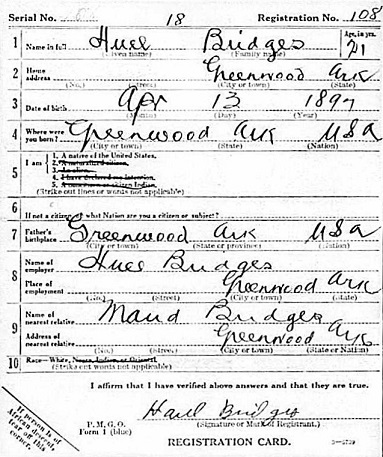 Serial No. 18 Registration No. 108
1 Name in full Huel Bridges Age, in yrs.
(Given name) (Family name) 21
2 Home address Greenwood Ark
(No.) (Street) (City or town) (State)
3 Date of birth Apr 13 1897
(Month) (Day) (Year)
4 Where were you born? Greenwood Ark USA
(City or town) (State) (Nation)
5 I am
1. A native of the United States.
2. A naturalized citizen.
3. An alien.
4. I have declared my intention.
5. A noncitizen or citizen Indian.
(Strike out lines or words not applicable)
6 If not a citizen, of what Nation are you a citizen or subject?
7 Father's birthplace Greenwood Ark USA
(City or town) (State or province) (Nation)
8 Name of employer Huel Bridges
Place of employment Greenwood Ark
(No.) (Street) (City or town) (State)
9 Name of nearest relative Maud Bridges
Address of nearest relative Greenwood Ark
(No.) (Street) (City or town) (State or Nation)
10 Race—White, Negro, Indian, or Oriental
(Strike out words not applicable)
I affirm that I have verified above answers and that they are true.
P. M. G. O.
Form 1 (blue)
Huel Bridges
(Signature or Mark of Registrant.)
REGISTRATION CARD.
If person is of African descent, tear off this corner.